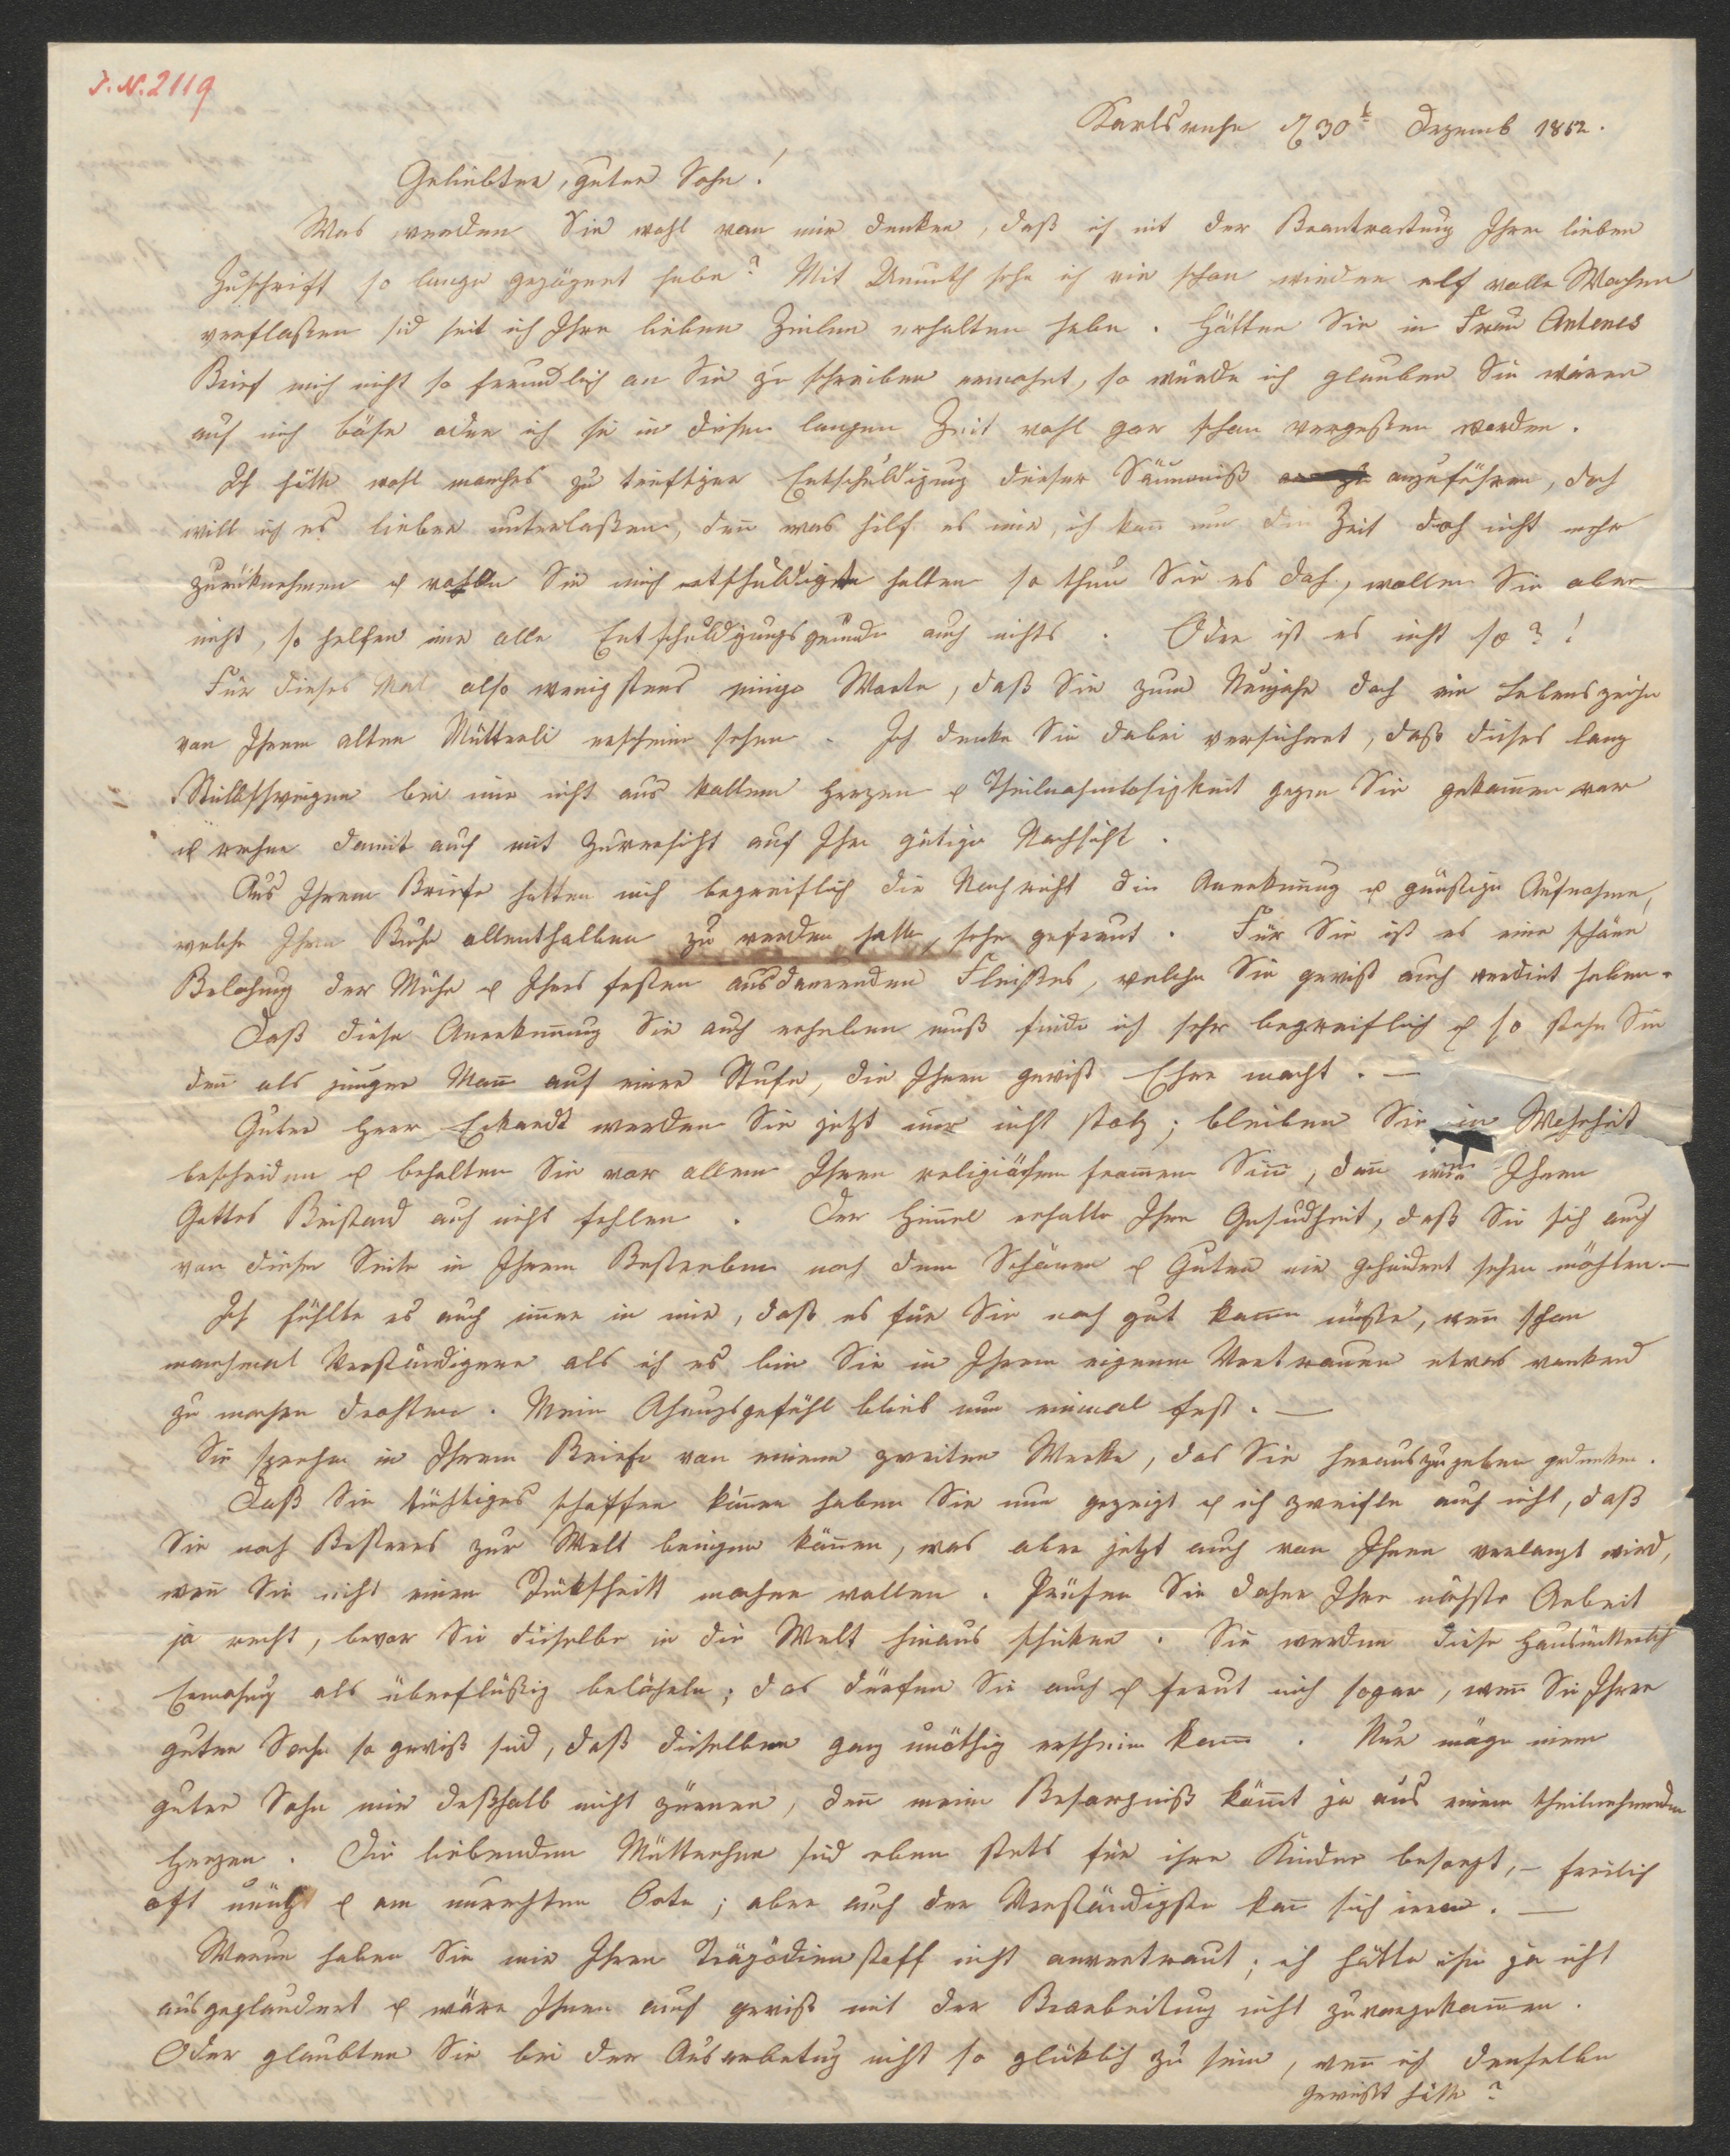 J. N. 2119
Karlsruhe d 30t Dezemb 1852.
Geliebter, guter Sohn!
Was werden Sie wohl von mir denken, daß ich mit der Beantwortung Ihrer lieben
Zuschrift so lange gezögert habe? Mit Unmuth sehe ich wie schon wieder elf volle Wochen
verfloßen sid seit ich Ihre lieben Zeilen erhalten habe. Hätten Sie in Frau Antenes
Brief mich nicht so freundlich an Sie zu schreiben ermahnt, so würde ich glauben Sie wären
auf mich böse oder ich sei in dieser langen Zeit wohl gar schon vergeßen worden.
Ich hätte wohl manches zu triftiger Entschuldigung dieser Säumniß anzuführen, doch
will ich es lieber unterlaßen, den was hilf es mir, ich kan nur die Zeit doch nicht mehr
zurüknehmen & wollen Sie mich entschuldigt halten so thun Sie es doch, wollen Sie aber
nicht, so helfen mir alle Entschuldigungsgründe auch nichts. Oder ist es nicht so?!
Für dieses Mal also wenigstens einige Worte, daß Sie zum Neujahr doch ein Lebenszeichn
von Ihrem alten Mütterli erscheine sehen. Ich denke Sie dabei versichert, daß dieses lang
Stillschweigen bei mir nicht aus kaltem Herzen & Theilnahmlosigkeit gegen Sie gekomen war
& rechne damit auch mit Zuversicht auf Ihre gütige Nachsicht.
Aus Ihrem Briefe hatten mich begreiflich die Nachricht die Anerkenung & günstige Aufnahme,
welche Ihrem Buche allenthalben zu werden hatte, sehr gefreut. Für Sie ist es eine schöne
Belohung der Mühe & Ihres festen ausdauernden Fleißes, welche Sie gewiß auch verdint haben.
Daß diese Anerkenung Sie auch erheben muß finde ich sehr begreiflich & so stehe Sie
den als junger Man auf einer Stufe, die Ihnen gewiß Ehre macht. —
Guter Herr Eckardt werden Sie jetzt nur nicht stolz; bleiben Sie in Wahrheit
bescheiden & behalten Sie vor allem Ihren religiösen fromen Sin, dan wird Ihnen
Gottes Beistand auch nicht fehlen. Der Himel erhalte Ihre Gesudheit, daß Sie sich auch
von dieser Seite in Ihrem Bestreben nach dem Schönen & Guten nie gehindert sehen möchten. —
Ich fühlte es auch imer in mir, daß es für Sie noch gut komen müßte, wen schon
manchmal Verständigere als ich es bin Sie in Ihrem eigenen Vertrauen etwas wankend
zu machen drohten. Mein Ahnugsgefühl blieb nun einmal fest. —
Sie sprechen in Ihrem Briefe von einem zweiten Werke, das Sie herauszugeben gedenken.
Daß Sie tüchtiges schaffen könen haben Sie nun gezeigt & ich zweifle auch nicht, daß
Sie noch Beßeres zur Welt bringen könen, was aber jetzt auch von Ihnen verlangt wird,
wen Sie nicht einen Rükschritt machen wollen. Prüfen Sie daher Ihre nächste Arbeit
ja recht, bevor Sie dieselbe in die Welt hinaus schiken. Sie werden diese Hausmütterlich
Ermahug als überflüßig belächeln; das dürfen Sie auch & freut mich sogar, wen Sie Ihrer
guten Sache so gewiß sid, daß dieselben ganz unöthig erscheine kann. Nur möge mein
guter Sohn mir deßhalb nicht zürnen, den meine Besorgniß kömt ja aus einem theilnehmenden
Herzen. Die liebenden Mütterchen sid eben stets für ihre Kinder besorgt, — freilich
oft unütz & am unrechten Orte; aber auch der Verständigste kan sich irren. —
Warum haben Sie mir Ihren Tragödienstoff nicht anvertraut; ich hätte ihn ja nicht
ausgeplaudert & wäre Ihnen auch gewiß mit der Bearbeitung nicht zuvorgekomen.
Oder glaubten Sie bei der Ausarbeitug nicht so glüklich zu sein, wen ich denselben
gewußt hätte?